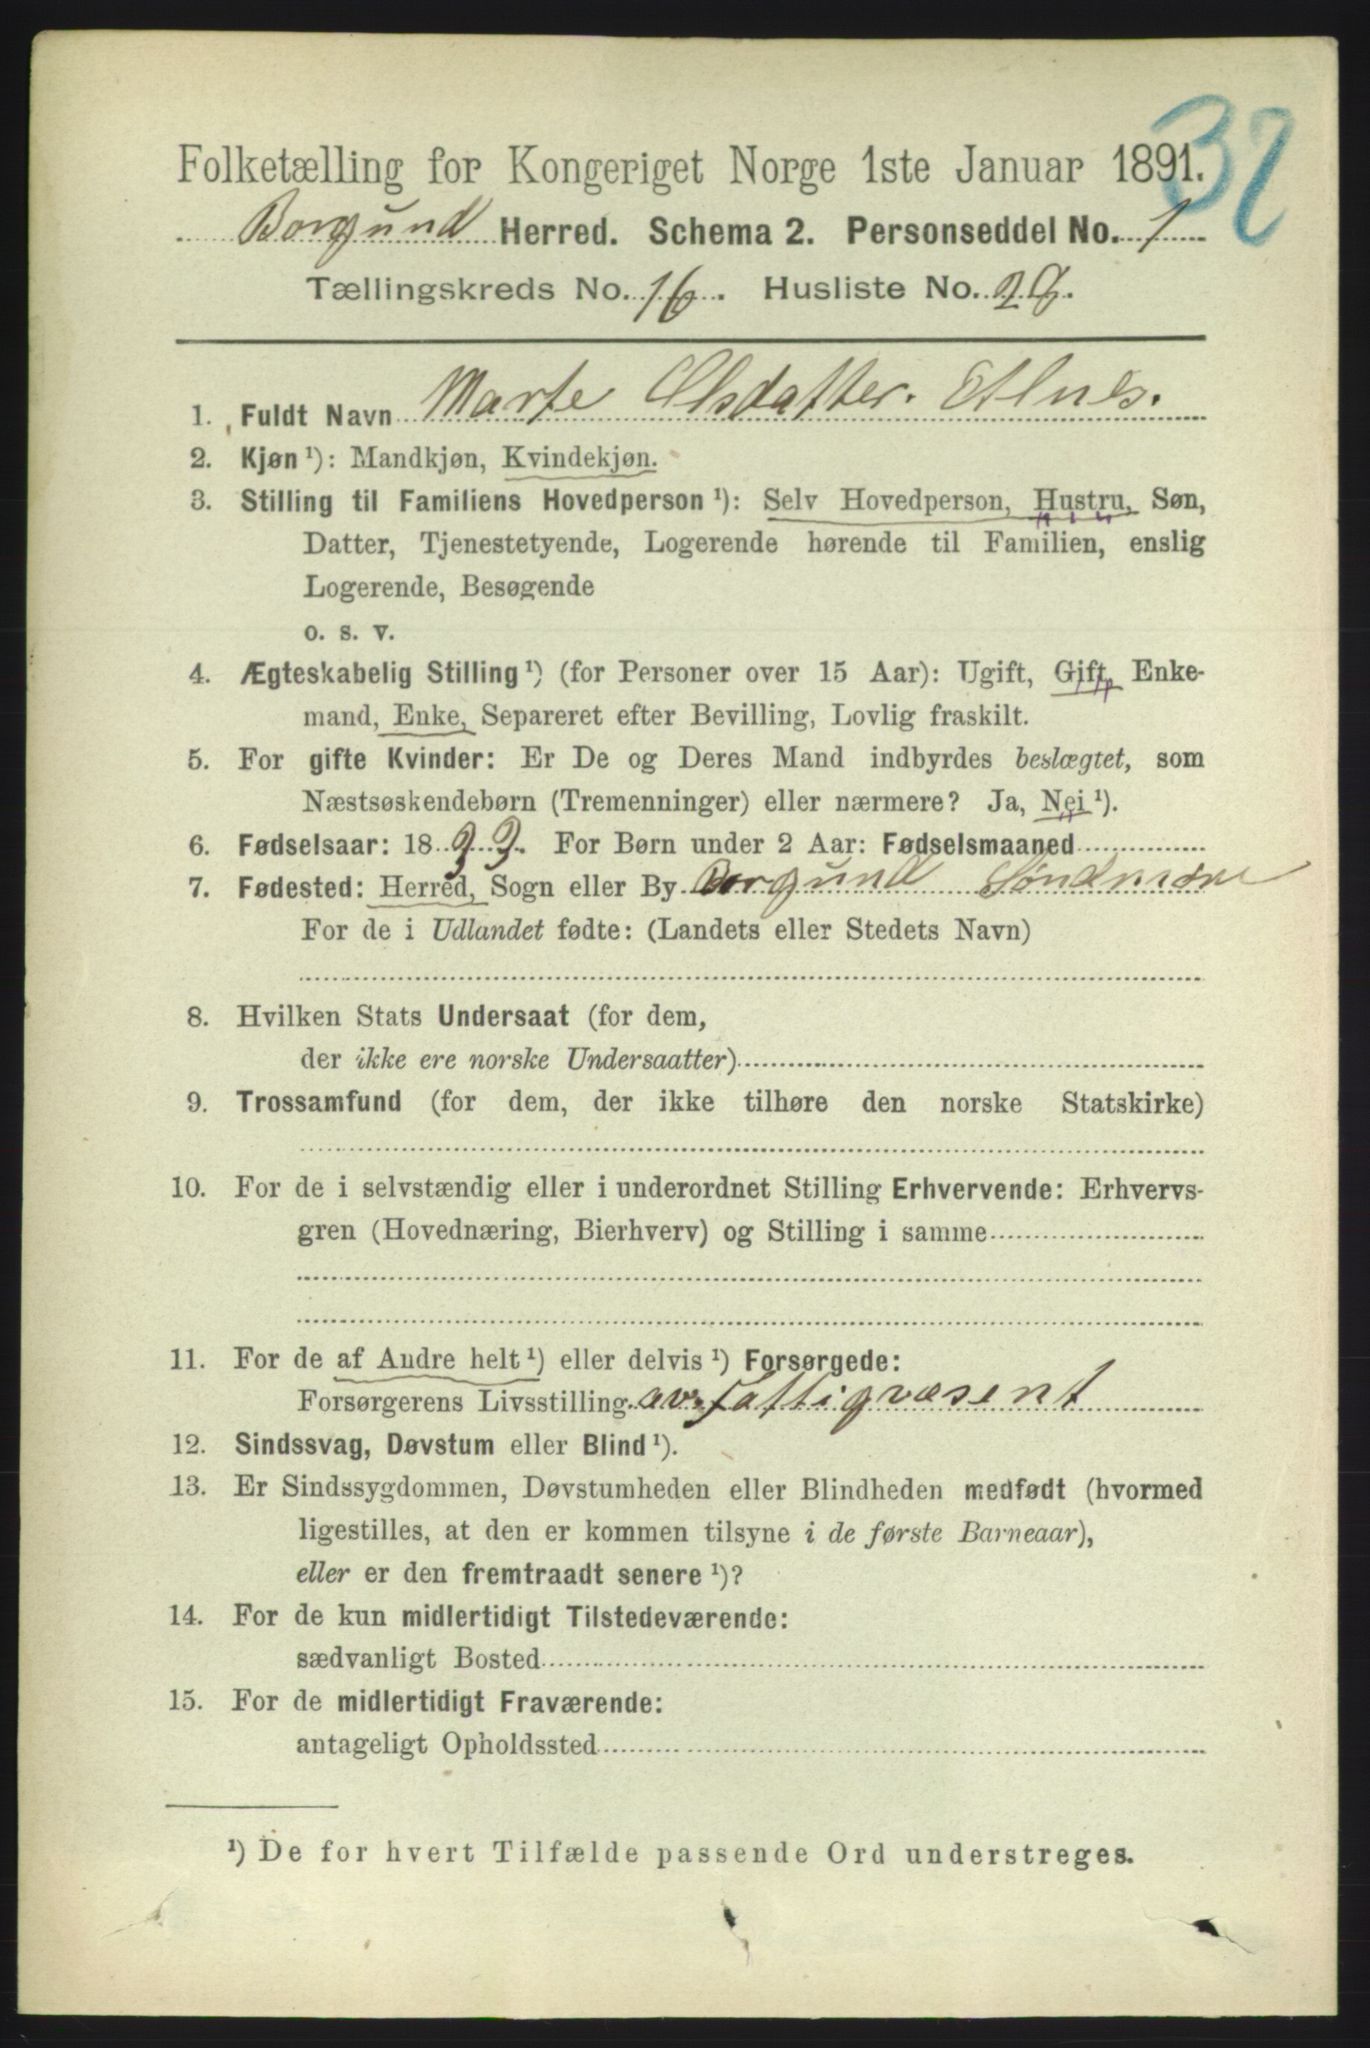 32
Folketælling for Kongeriget Norge 1ste Januar 1891.
Borgund Herred. Schema 2. Personseddel No. 1
Tællingskreds No. 16. Husliste No. 29.
1. Fuldt Navn Marte Olsdatter. Alnes.
2. Kjøn ¹): Mandkjøn, Kvindekjøn.
3. Stilling til Familiens Hovedperson ¹): Selv Hovedperson, Hustru, Søn,
Datter, Tjenestetyende, Logerende hørende til Familien, enslig
Logerende, Besøgende
o. s. v.
4. Ægteskabelig Stilling ¹) (for Personer over 15 Aar): Ugift, Gift, Enke-
mand, Enke, Separeret efter Bevilling, Lovlig fraskilt.
5. For gifte Kvinder: Er De og Deres Mand indbyrdes beslægtet, som
Næstsøskendebørn (Tremenninger) eller nærmere? Ja, Nei ¹).
6. Fødselsaar: 1833. For Børn under 2 Aar: Fødselsmaaned
7. Fødested: Herred, Sogn eller By Borgund Søndmøre
For de i Udlandet fødte: (Landets eller Stedets Navn)
8. Hvilken Stats Undersaat (for dem,
der ikke ere norske Undersaatter)
9. Trossamfund (for dem, der ikke tilhøre den norske Statskirke)
10. For de i selvstændig eller i underordnet Stilling Erhvervende: Erhvervs-
gren (Hovednæring, Bierhverv) og Stilling i samme
11. For de af Andre helt ¹) eller delvis ¹) Forsørgede:
Forsørgerens Livsstilling av Fattigvæsent
12. Sindssvag, Døvstum eller Blind ¹).
13. Er Sindssygdommen, Døvstumheden eller Blindheden medfødt (hvormed
ligestilles, at den er kommen tilsyne i de første Barneaar),
eller er den fremtraadt senere ¹)?
14. For de kun midlertidigt Tilstedeværende:
sædvanligt Bosted
15. For de midlertidigt Fraværende:
antageligt Opholdssted
¹) De for hvert Tilfælde passende Ord understreges.